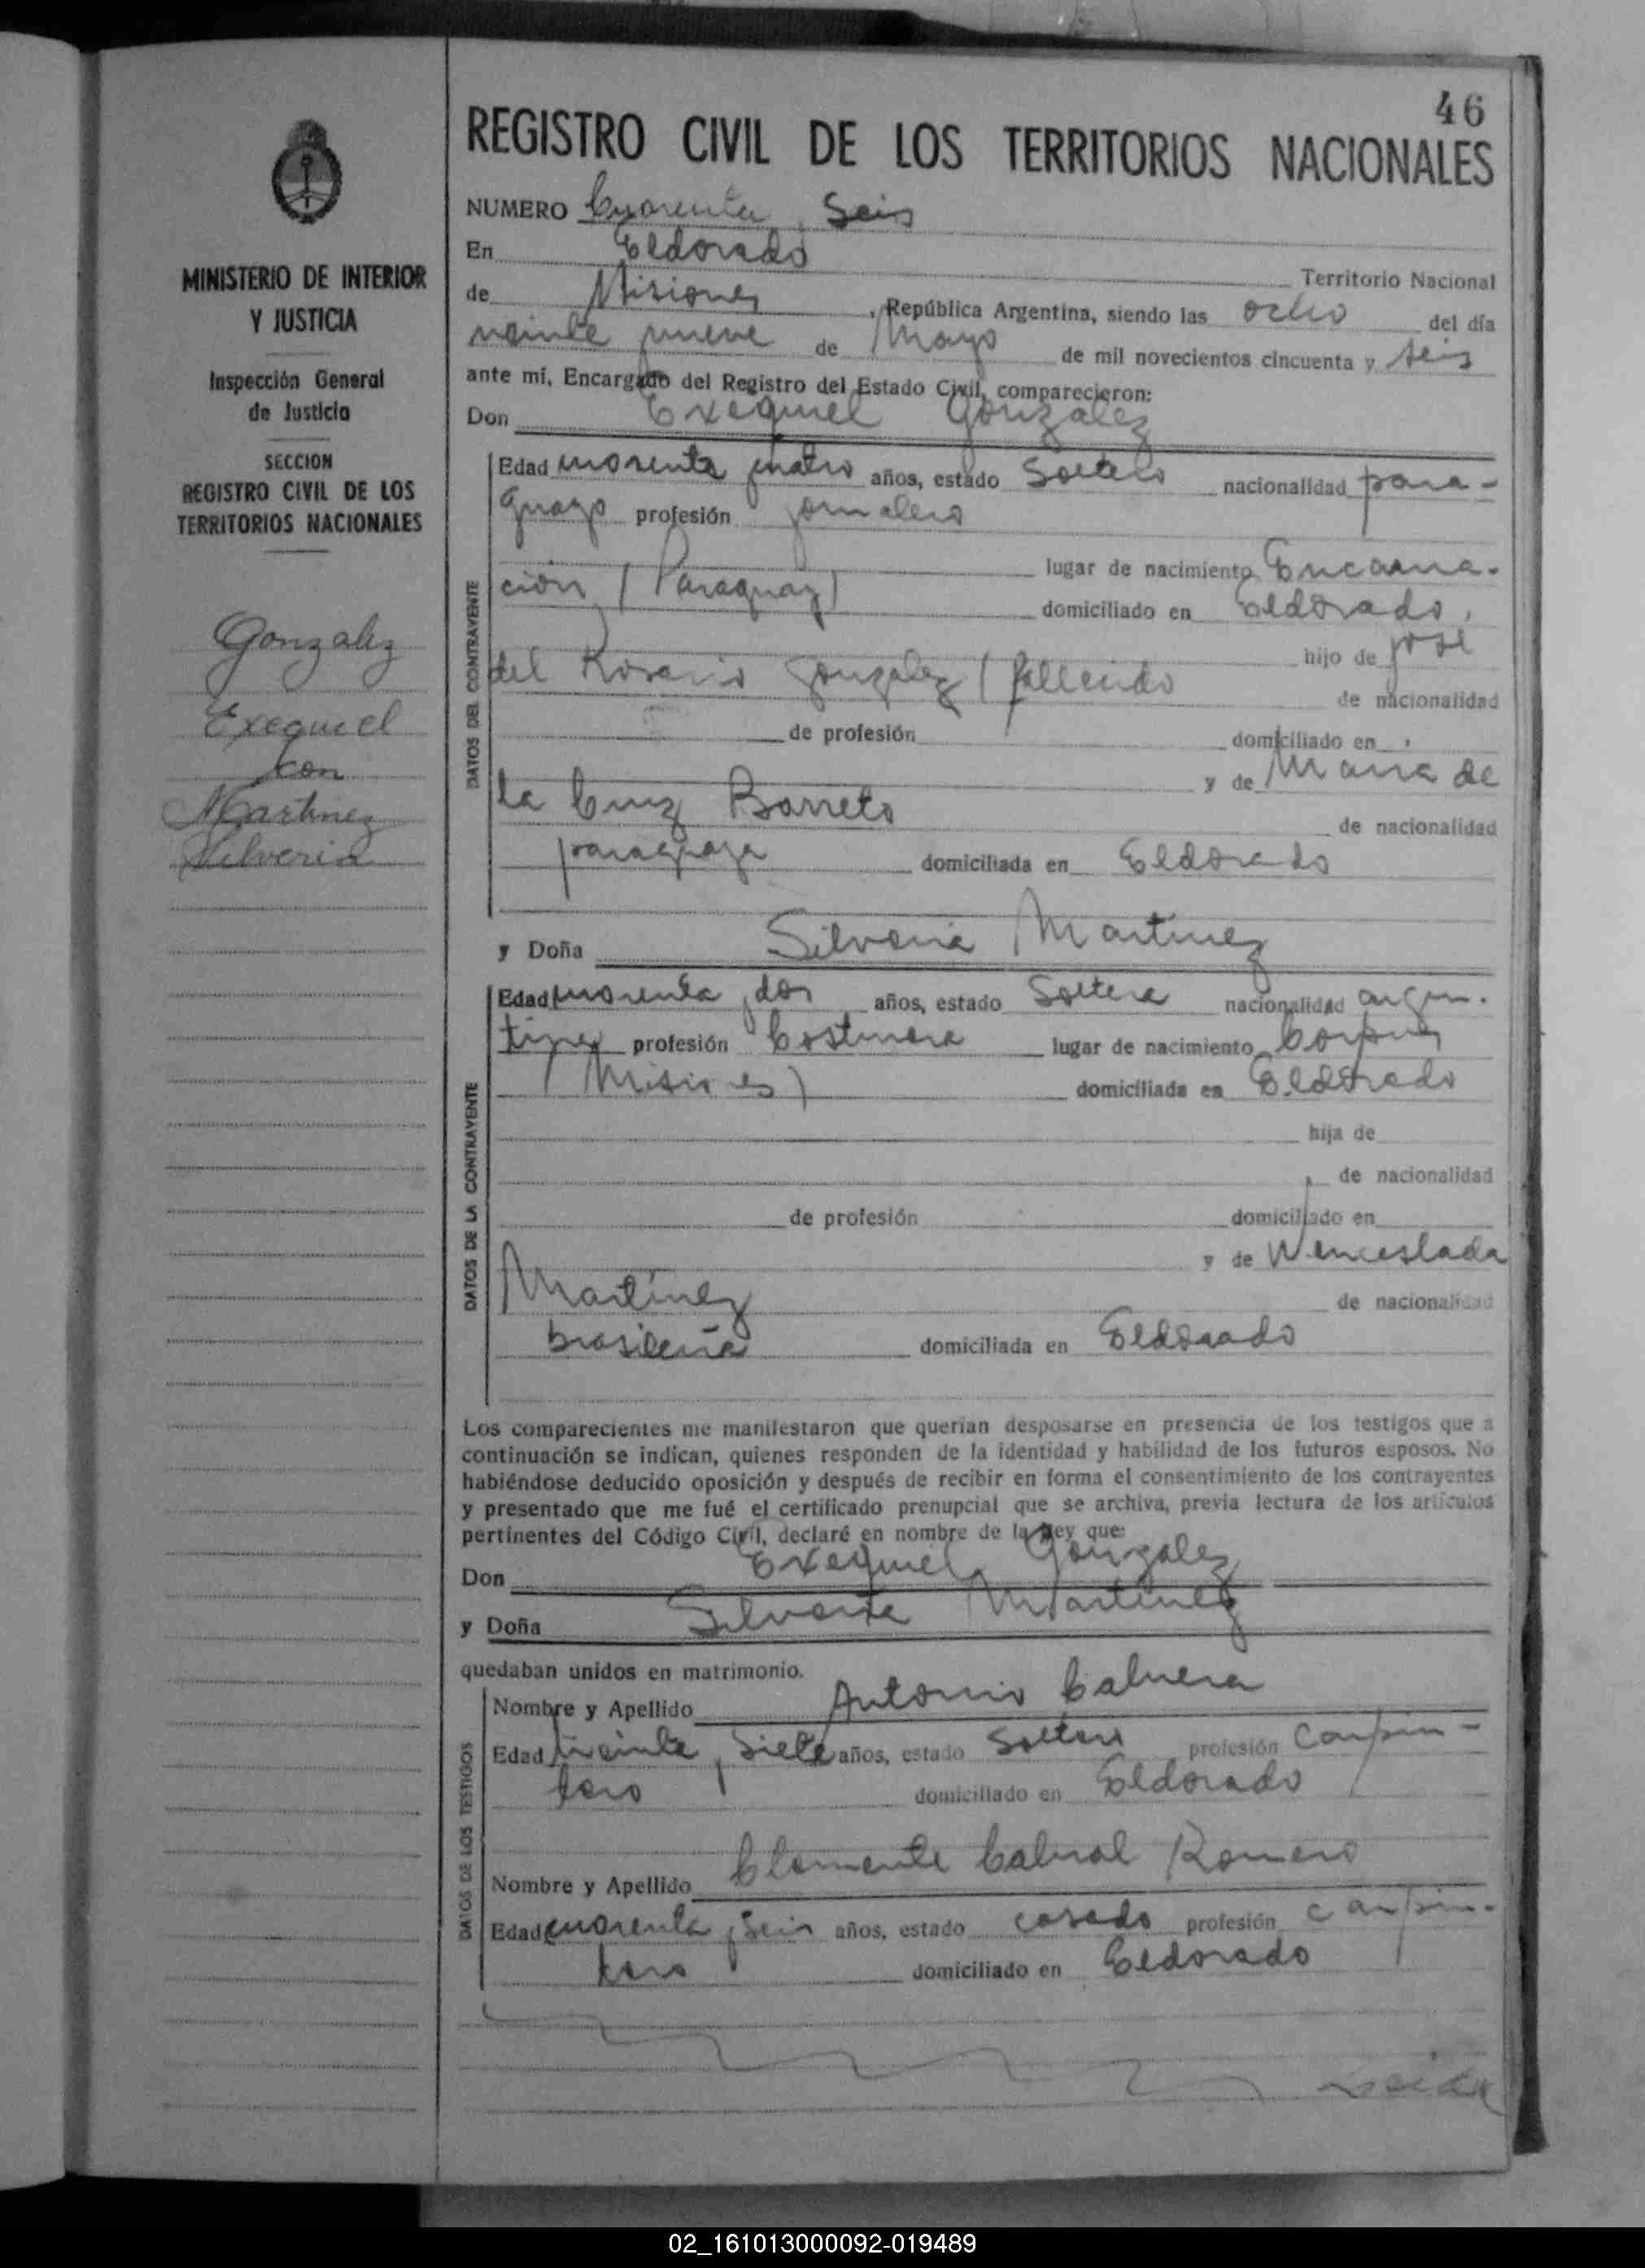 46
REGISTRO CIVIL DE LOS TERRITORIOS NACIONALES
MINISTERIO DE INTERIOR
Y JUSTICIA
Inspección General
de Justicia
SECCION
REGISTRO CIVIL DE LOS
TERRITORIOS NACIONALES
Gonzalez
Exequiel
con
Martinez
Silveria
NUMERO Cuarenta y Seis
En Eldorado Territorio Nacional
de Misiones, República Argentina, siendo las ocho del día
veinte nueve de Mayo de mil novecientos cincuenta y seis
ante mí, Encargado del Registro del Estado Civil, comparecieron:
Don Exequiel Gonzalez
DATOS DEL CONTRAYENTE
Edad cuarenta y cuatro años, estado Soltero nacionalidad para-
guayo profesión jornalero
lugar de nacimiento Encarna-
ción (Paraguay) domiciliado en Eldorado,
hijo de José
del Rosario Gonzalez (fallecido de nacionalidad
de profesión domiciliado en
y de Maria de
la Cruz Barreto de nacionalidad
paraguaya domiciliada en Eldorado
y Doña Silveria Martinez
DATOS DE LA CONTRAYENTE
Edad cuarenta y dos años, estado Soltera nacionalidad argen-
tina profesión Costurera lugar de nacimiento Corpus
(Misiones) domiciliada en Eldorado
hija de
de nacionalidad
de profesión domiciliado en
y de Wenceslada
Martínez de nacionalidad
brasileña domiciliada en Eldorado
Los comparecientes me manifestaron que querían desposarse en presencia de los testigos que a
continuación se indican, quienes responden de la identidad y habilidad de los futuros esposos. No
habiéndose deducido oposición y después de recibir en forma el consentimiento de los contrayentes
y presentado que me fué el certificado prenupcial que se archiva, previa lectura de los artículos
pertinentes del Código Civil, declaré en nombre de la Ley que:
Don Exequiel Gonzalez
y Doña Silveria Martinez
quedaban unidos en matrimonio.
DATOS DE LOS TESTIGOS
Nombre y Apellido Antonio Cabrera
Edad treinta y siete años, estado Soltero profesión Carpin-
tero domiciliado en Eldorado
Nombre y Apellido Clemente Cabral Romero
Edad cuarenta y Seis años, estado casado profesión carpin-
tero domiciliado en Eldorado
02_161013000092-019489